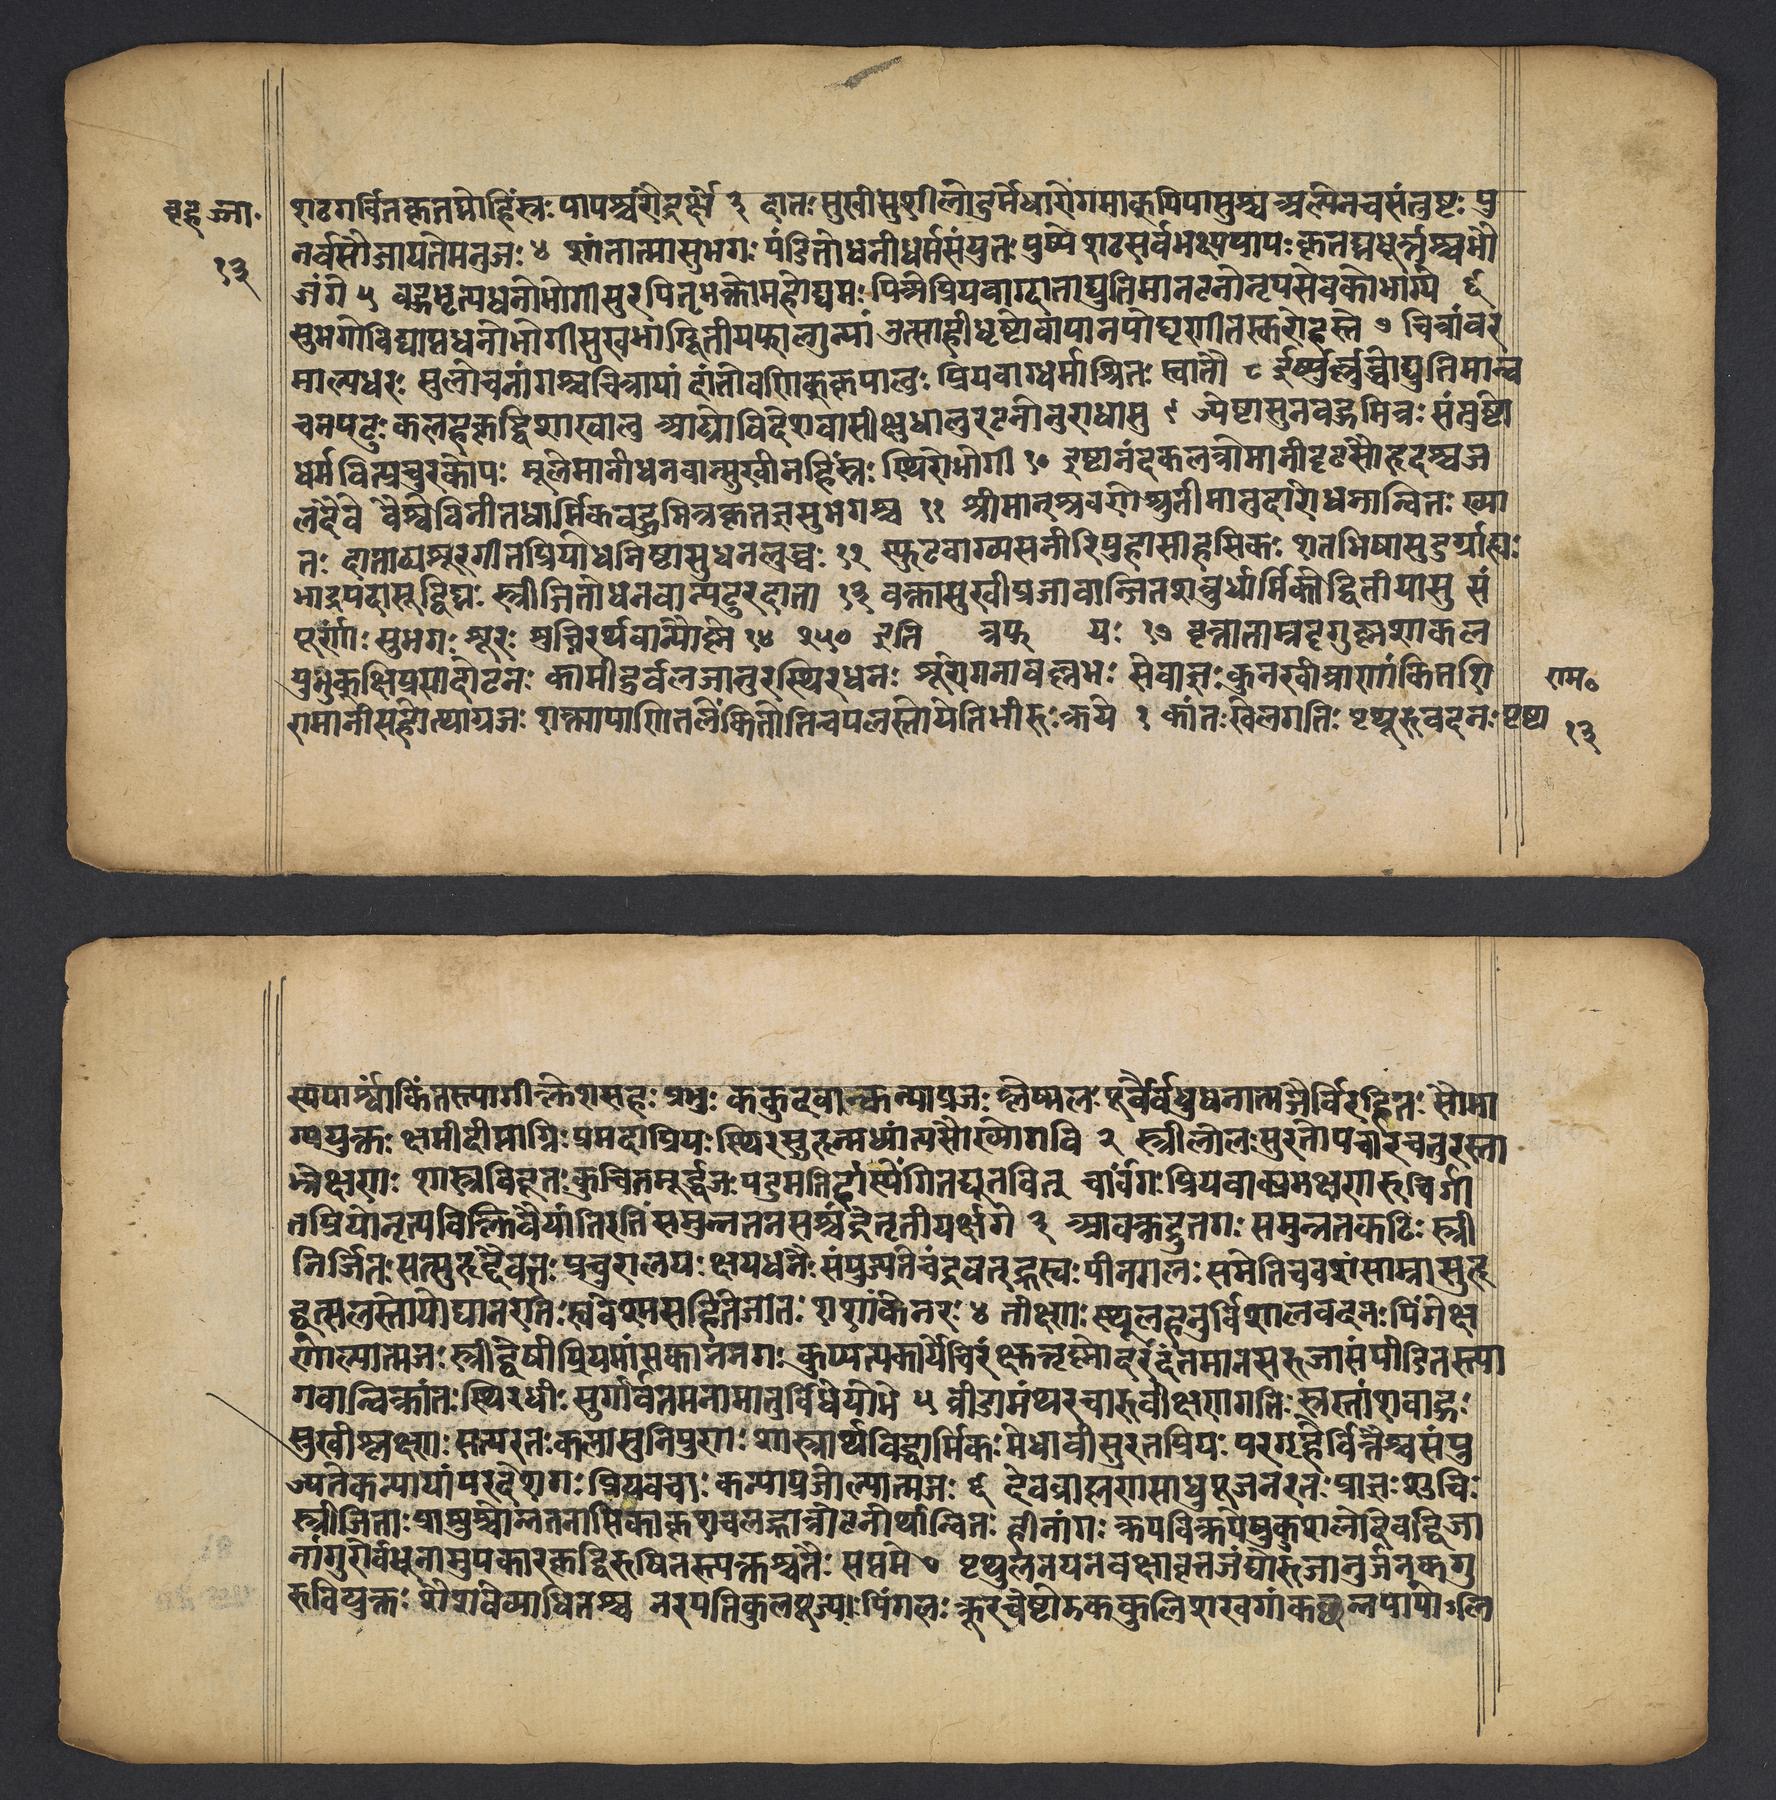 बृहज्जा.
१३
शठगर्वितकृतघ्नोहिंस्रः पापश्चरौद्रर्क्षे ३ दांतः सुखीसुशीलोदुर्मेधारोगभाक् पिपासुश्च अल्पेनचसंतुष्टः पु
नर्वसौजायतेमनुजः ४ शांतात्मासुभगः पंडितोधनीधर्मसंयुतः पुष्ये शठसर्वभक्ष्यपापः कृतघ्नधूर्त्तश्चभौ
जंगे ५ बहुभृत्यधनोभोगीसुरपितृभक्तोमहोद्यमः पित्र्ये प्रियवाग्दाताद्युतिमानटनोनृपसेवकोभाग्ये ६
सुभगोविद्याप्तधनोभोगीसुखभाग्द्वितीयफाल्गुन्यां उत्साहीधृष्टोवापानपोघृणीतस्करोहस्ते ७ चित्रांबर
माल्यधरः सुलोचनांगश्चचित्रायां दांतोवणिक्कृपालुः प्रियवाग्धर्माश्रितः स्वातौ ८ ईर्ष्युर्लुब्धोद्युतिमान्व
चनपटुः कलहकृद्विशाखासु आढ्योविदेशवासीक्षुधालुरटनोनुराधासु ९ ज्येष्ठासुनबहुमित्रः संतुष्टो
धर्मवित्प्रचुरकोपः मूलेमानीधनवान्सुखीनहिंस्रः स्थिरोभोगी १० इष्टानंदकलत्रोमानीदृढसौहृदश्चज
लदैवे वैश्वेविनीतधार्मिकबहुमित्रकृतज्ञसुभगश्च ११ श्रीमान्श्रवणेश्रुतीमानुदारोधनान्वितः ख्या
तः दाताढ्यशूरगीतप्रियोधनिष्टासुधनलुब्धः १२ स्फुटवाग्व्यसनीरिपुहासाहसिकः शतभिषासुदुर्ग्राह्यः
भाद्रपदासूद्विग्नः स्त्रीजितोधनवान्पटुरदाता १३ वक्तासुखीप्रजावान्जितशत्रुर्धार्मिकोद्वितीयासु सं
पूर्णांगः सुभगः शूरः शुचिरर्थवान्पौष्णे १४ २५० इति त्रफ यः १७ वृत्ताताम्रदृगुष्णशाकल
घुभुक्क्षिप्रप्रसादोटनः कामीदुर्बलजानुरस्थिरधनः शूरोंगनावल्लभः सेवाज्ञः कुनखीव्रणांकितशि
रामानीसहोत्थाग्रजः शक्त्यापाणितलेंकितोतिचपलस्तोयेतिभीरुः क्रिये १ कांतः खेलगतिः पृथूरुवदनः पृष्ठा
राम०
१३
स्यपार्श्वांकितस्त्यागीक्लेशसहः प्रभुः ककुदवान्कन्याप्रजः श्लेष्मलः पूर्वैर्बंधुधनात्मजैर्विरहितः सौभा
ग्ययुक्तः क्षमीदीप्ताग्निः प्रमदाप्रियः स्थिरसुहृन्मध्यांत्यसौख्योगवि २ स्त्रीलोलः सुरतोपचारचतुरस्ता
म्रेक्षणः शास्त्रविद्दूतः कुंचितमूर्द्धजः पटुमतिर्हास्येंगितद्यूतवित् चार्वंगः प्रियवाक्प्रभक्षणरुचिर्गी
तप्रियोनृत्यवित्क्लीबैर्यातिरतिंसमुन्नतनसश्चंद्रेतृतीयर्क्षगे ३ आवक्रद्रुतगः समुन्नतकटिः स्त्री
निर्जितः सत्सुहृद्दैवज्ञः प्रचुरालयः क्षयधनैः संयुज्यतेचंद्रवत् ह्रस्वः पीनगलः समेतिचवशंसाम्नासुहृ
द्वत्सलस्तोयोद्यानरतिः स्ववेश्मसहितेजातः शशांकेनरः ४ तीक्ष्णः स्थूलहनुर्विशालवदनः पिंगेक्ष
णोल्पात्मजः स्त्रीद्वेषीप्रियमांसकाननगः कुप्यत्यकार्येचिरं क्षुत्तृष्णोदरदंतमानसरुजासंपीडितस्त्या
गवान्विक्रांतः स्थिरधीः सुगर्वितमनामातुर्विधेयोमे ५ व्रीडामंथरचारुवीक्षणगतिः स्रस्तांशबाहुः
सुखीश्लक्ष्णः सत्यरतः कलासुनिपुणः शास्त्रार्थविद्धार्मिकः मेधावीसुरतप्रियः परगृहैर्वित्तैश्चसंयु
ज्यतेकन्यायांपरदेशगः प्रियवचाः कन्याप्रजोल्पात्मजः ६ देवब्राह्मणसाधुपूजनरतः प्राज्ञः शुचिः
स्त्रीजितः प्रांशुश्चोन्नतनासिकाकृशचलद्गात्रोटनोर्थान्वितः हीनांगः क्रयविक्रयेषुकुशलोदेवद्विजा
नांगुरोर्बंधूनामुपकारकृद्विरुषितस्त्यक्तश्चतैः सप्तमे ७ पृथुलनयनवक्षावृत्तजंघोरुजानुर्जनकगु
रुवियुक्तः शैशवेव्याधितश्च नरपतिकुलपूज्यः पिंगलः क्रूरचेष्टोझककुलिशखगांकछन्नपापोऽलि